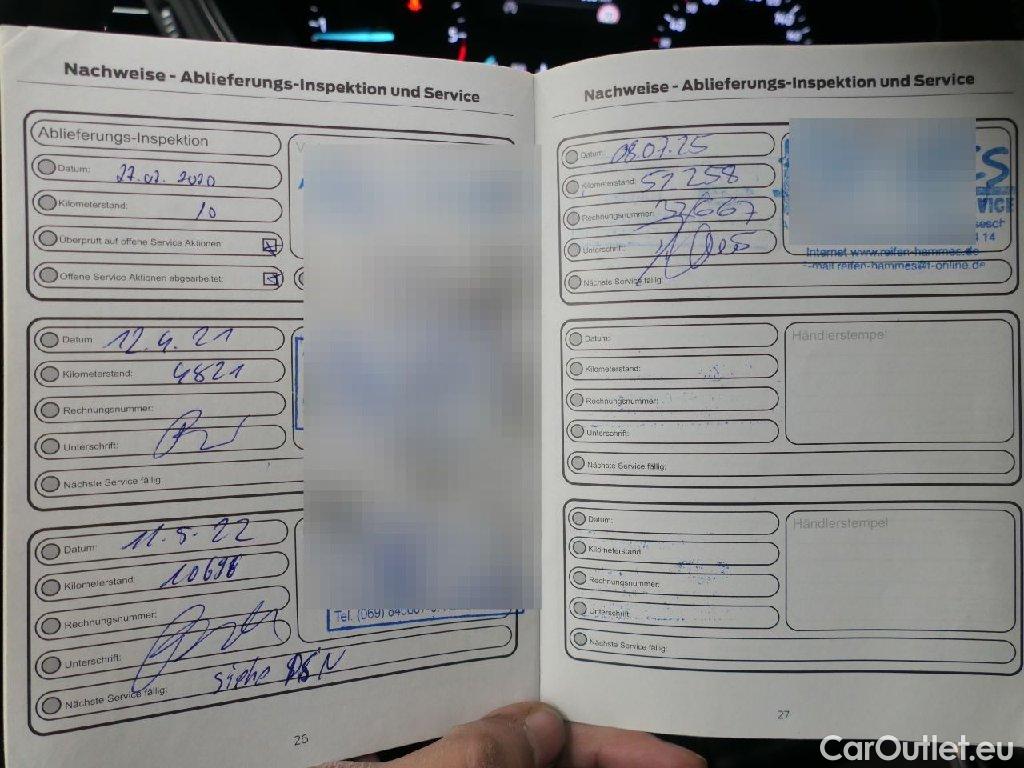 Nachweise - Ablieferungs-Inspektion und Service
Ablieferungs-Inspektion
Datum: 27.02.2020
Kilometerstand: 10
Überprüft auf offene Service Aktionen
Offene Service Aktionen abgearbeitet:
Datum: 12.4.21
Kilometerstand: 4821
Rechnungsnummer:
Unterschrift:
Nächste Service fällig:
Datum: 11.5.22
Kilometerstand: 10698
Rechnungsnummer:
Unterschrift:
Nächste Service fällig: siehe
Tel. (069)
26
Nachweise - Ablieferungs-Inspektion und Service
Datum: 08.07.25
Kilometerstand: 51258
Rechnungsnummer:
Unterschrift:
Nächste Service fällig:
Internet www.reifen-hammes.de
e-mail reifen-hammes@t-online.de
Datum:
Kilometerstand:
Rechnungsnummer:
Unterschrift:
Nächste Service fällig:
Händlerstempel
Datum:
Kilometerstand:
Rechnungsnummer:
Unterschrift:
Nächste Service fällig:
Händlerstempel
27
CarOutlet.eu